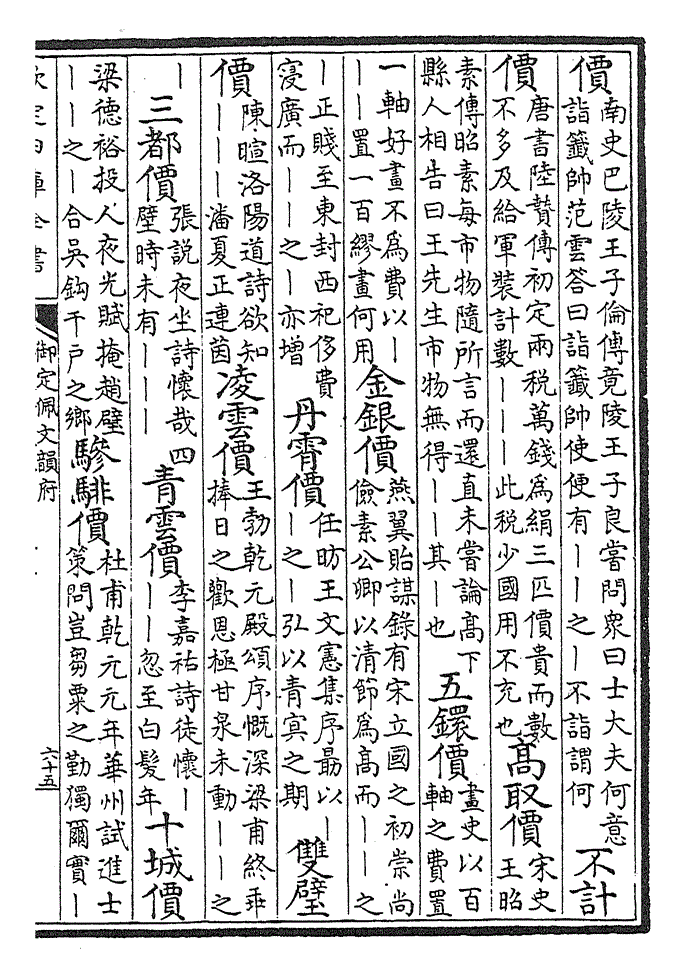 價南史巴陵王子倫傳竟陵王子良嘗問衆曰士大夫何意詣籤帥范雲答曰詣籤帥使便有――之―不詣謂何不計
價唐書陸贄傳初定兩税萬錢爲絹三匹價貴而數不多及給軍裝計數―――此税少國用不充也髙取價宋史王昭
素傳昭素每市物隨所言而還直未嘗論髙下縣人相告曰王先生市物無得――其―也五鐶價畫史以百軸之費置
一軸好畫不爲費以―――置一百繆畫何用金銀價燕翼貽謀錄有宋立國之初崇尚儉素公卿以清節爲髙而――之
―正賤至東封西祀侈費寖廣而――之―亦增丹霄價任昉王文憲集序朂以――之―弘以青冥之期雙璧
價陳暄洛陽道詩欲知―――潘夏正連茵凌雲價王勃乾元殿頌序慨深梁甫終乖捧日之歡恩極甘泉未動――之
―三都價張說夜坐詩懷哉四壁時未有―――青雲價李嘉祐詩徒懷―――忽至白髮年十城價
梁德裕投人夜光賦掩趙璧――之―合吳鈎千户之鄉驂騑價杜甫乾元元年華州試進士策問豈芻粟之勤獨爾實―
欽定四庫全書
御定佩文韻府
六十五